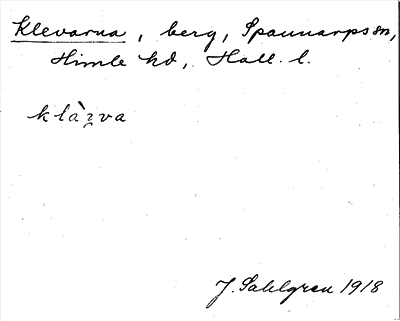 Klevarna, berg, Spannarps sn,
Himle hd, Hall. l.
klàʒva
J. Sahlgren 1918